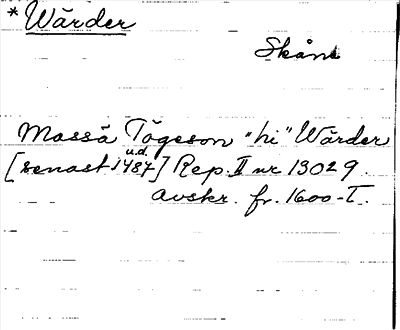 * Wärder
Skåne
Masså Tågeson "hi" Wärder
u.d.
[senast 1487] Rep. II nr 13029.
avskr. fr. 1600-t.